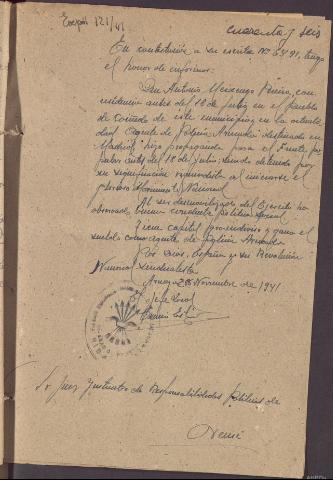 Exped. 121/41
cuarenta y seis
En contestación a su escrito Nº 6391, tengo
el honor de informar:
Don Antonio Meixengo Pereira, con
residencia antes del 18 de Julio en el pueblo
de de este municipio y en la actuali
dad Agente de Policía Armada destinado en
Madrid, hizo propaganda para el Frente po
pular antes del 18 de Julio, siendo detenido por
su significación izquierdista al iniciarse el
glorioso Movimiento Nacional.
Al ser desmovilizado del Ejercito ha
observado buena conducta politica social
y gana el
sueldo como agente de Policía Armada
Por Dios, España y su Revolución
Nacional Sindicalista
de Noviembre de 1941
El Jefe Local
Sr Juez Instructor de Responsabilidades Politicas de
Orense